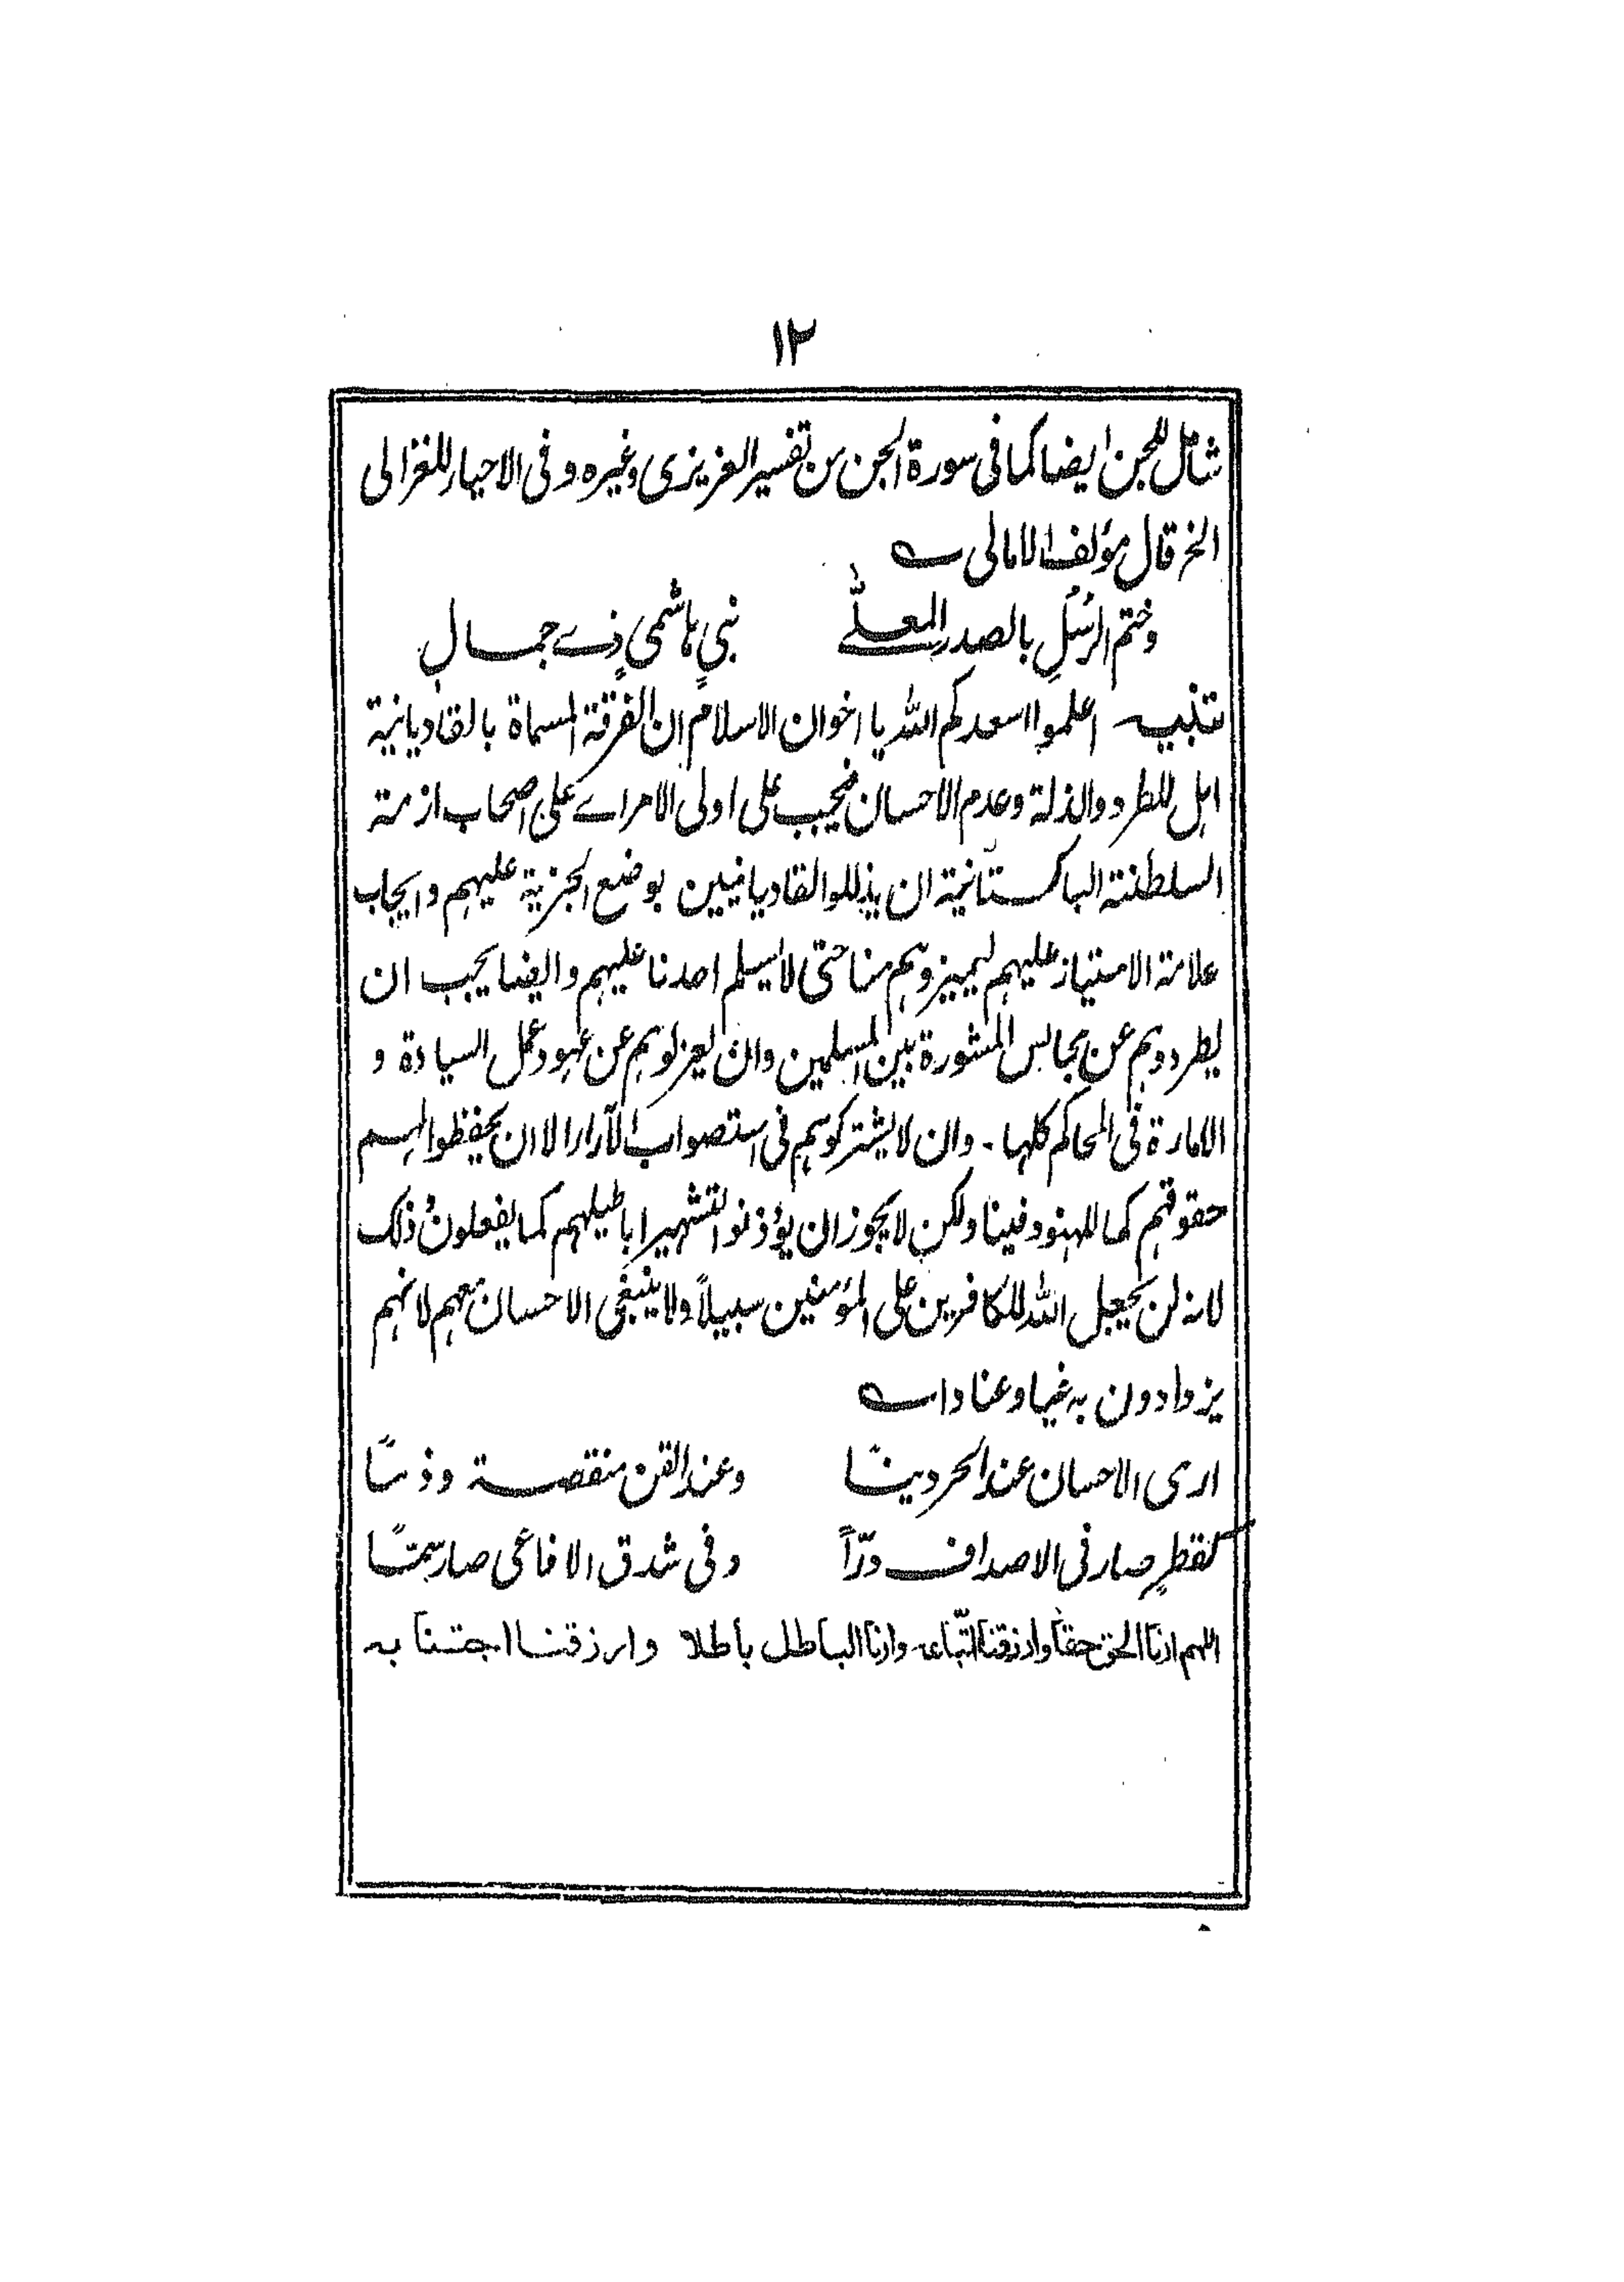 ۱۲
شامل للجن ايضا كما فى سورة الجن من تفسير العزيزى وغيره وفى الاحياء للغزالى
الخ قال مؤلف الامالى ؎
وختم الرسل بالصدر المعلّٰے نبيٍ هاشميٍ ذے جمال
تنبيه اعلموا اسعدكم الله يا اخوان الاسلام ان الفرقة المسماة بالقاديانية
اهل للطرد والذلة وعدم الاحسان فيجب على اولى الامر اے على اصحاب ازمة
السلطنة الباكستانية ان يذللوا القاديانيين بوضع الجزية عليهم وايجاب
علامة الامتياز عليهم ليميزوهم منا حتى لا يسلم احدنا عليهم وايضا يجب ان
يطردوهم عن مجالس المشورة بين المسلمين وان يعزلوهم عن عهود عمل السيادة و
الامارة فى المحاكم كلها ۔ وان لا يشتركوهم فى استصواب الآراء الا ان يحفظوا لهم
حقوقهم كما للهنود فينا ولكن لا يجوز ان يؤذنوا لتشهير اباطيلهم كما يفعلون ذلك
لانه لن يجعل الله للكافرين على المؤمنين سبيلاً ولا ينبغى الاحسان معهم لانهم
يزدادون به غيا وعنادا ؎
ارى الاحسان عند الحر دينًا وعند القن منقصة وذمًا
كقطرٍ صار فى الاصداف درّاً وفى شدق الافاعى صار سمًّا
اللهم ارنا الحق حقاً وارزقنا اتّباعه وارنا الباطل باطلا وارزقنا اجتنابه